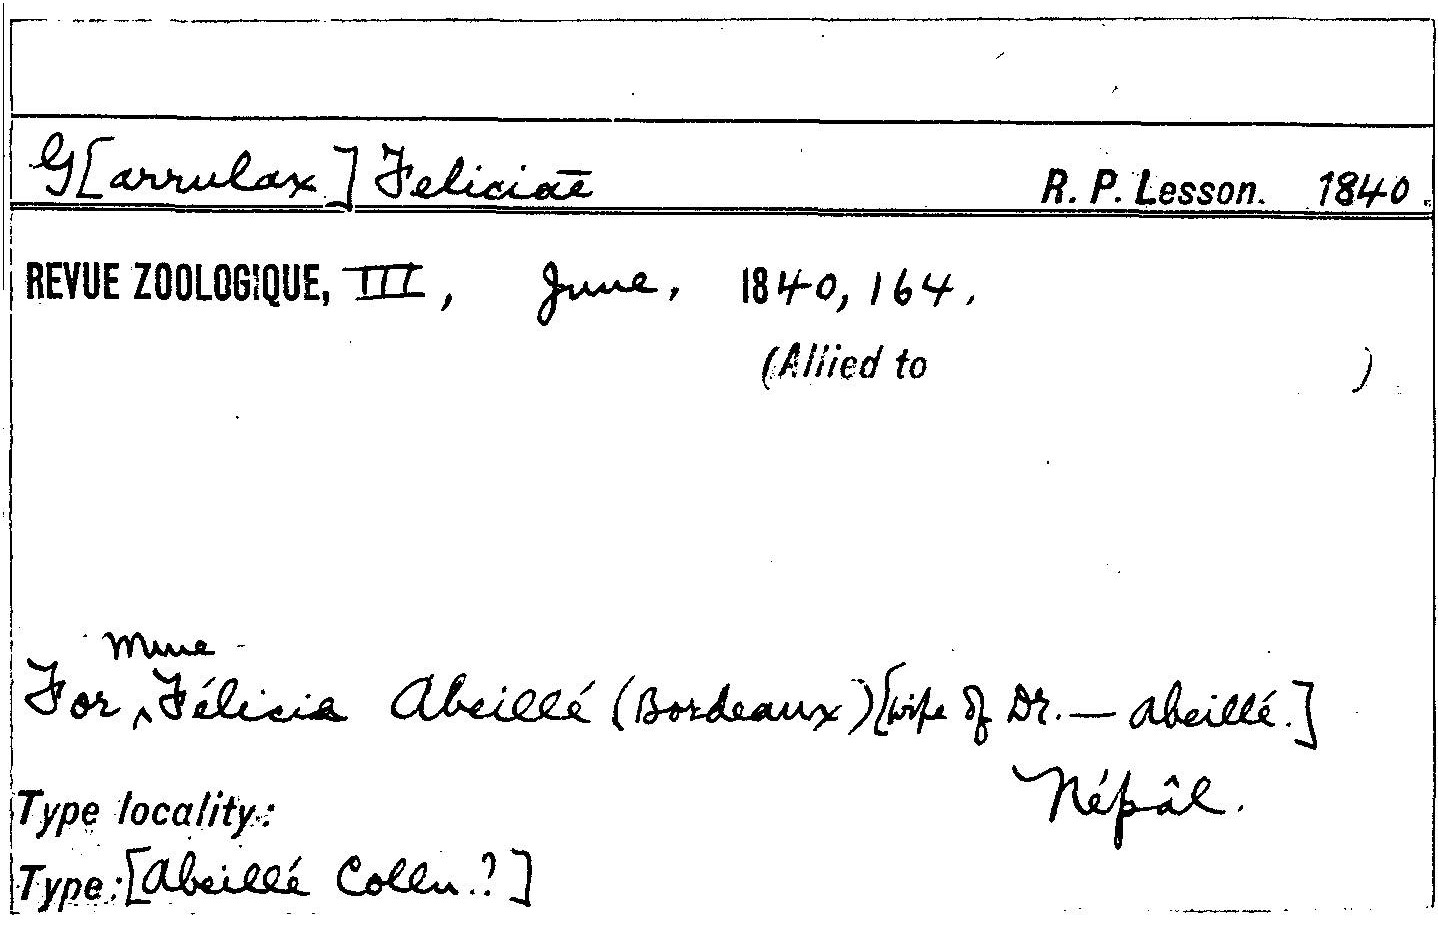 G[arrulax] Feliciae R. P. Lesson. 1840.
REVUE ZOOLOGIQUE, III, June, 1840, 164.
(Allied to )
Mme
For ^ Félicie Abeillé (Bordeaux) [wife of Dr. — Abeillé.]
Népâl.
Type locality:
Type: [Abeillé Colln.?]